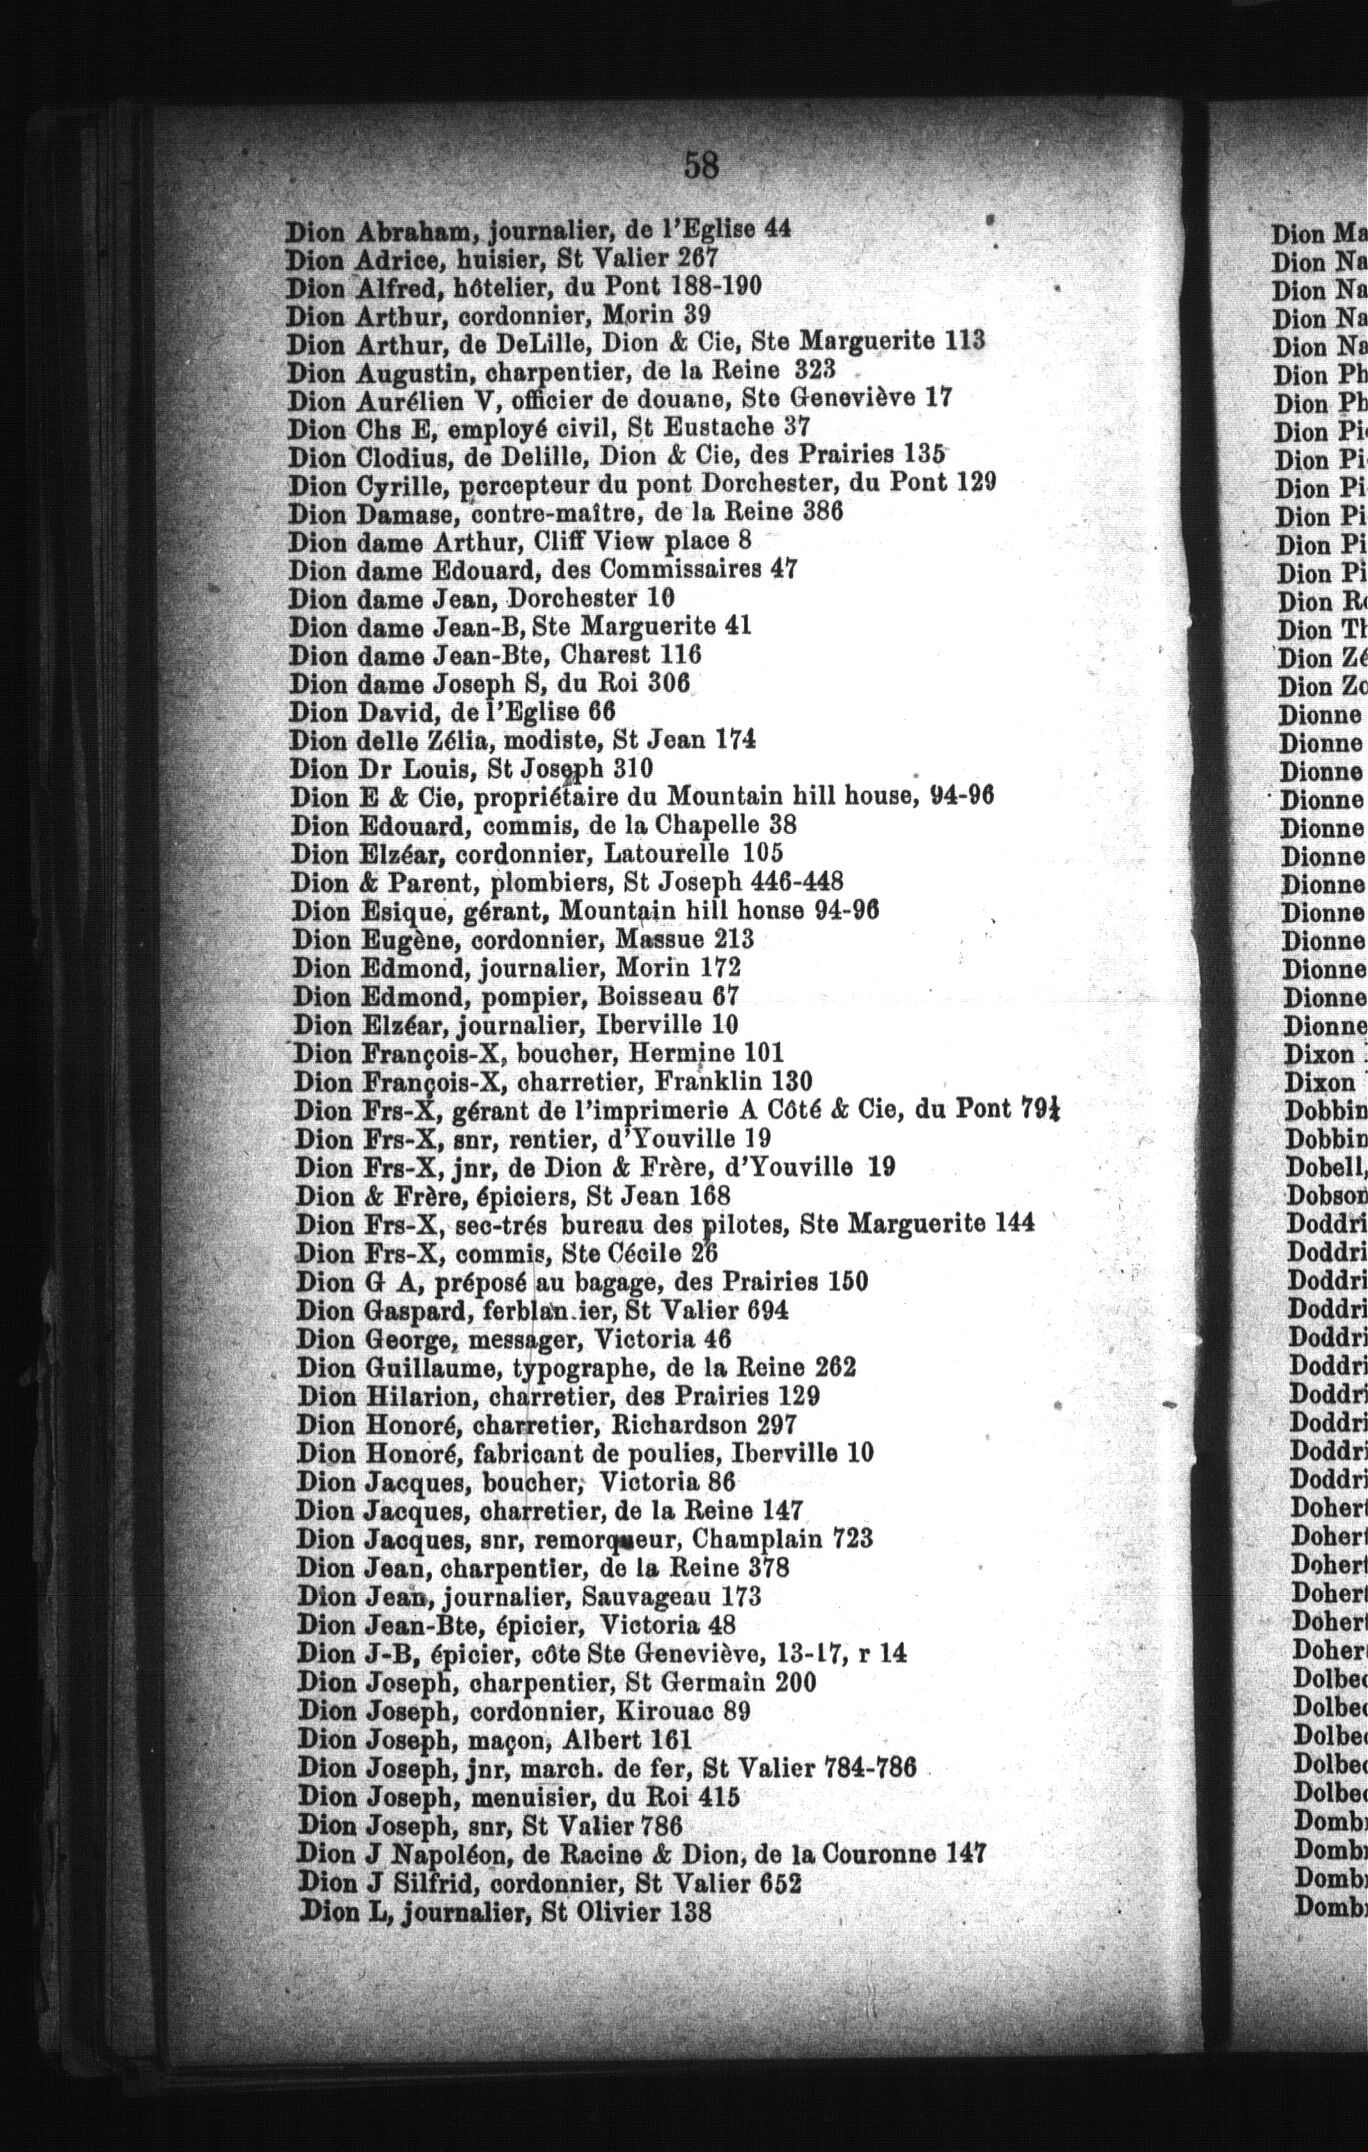 58
Dion Abraham, journalier, de l'Eglise 44
Dion Adrice, huisier, St Valier 267
Dion Alfred, hôtelier, du Pont 188-190
Dion Arthur, cordonnier, Morin 39
Dion Arthur, de DeLille, Dion & Cie, Ste Marguerite 113
Dion Augustin, charpentier, de la Reine 323
Dion Aurélien V, officier de douane, Ste Geneviève 17
Dion Chs E, employé civil, St Eustache 37
Dion Clodius, de Delille, Dion & Cie, des Prairies 135
Dion Cyrille, percepteur du pont Dorchester, du Pont 129
Dion Damase, contre-maître, de la Reine 386
Dion dame Arthur, Cliff View place 8
Dion dame Edouard, des Commissaires 47
Dion dame Jean, Dorchester 10
Dion dame Jean-B, Ste Marguerite 41
Dion dame Jean-Bte, Charest 116
Dion dame Joseph S, du Roi 306
Dion David, de l'Eglise 66
Dion delle Zélia, modiste, St Jean 174
Dion Dr Louis, St Joseph 310
Dion E & Cie, propriétaire du Mountain hill house, 94-96
Dion Edouard, commis, de la Chapelle 38
Dion Elzéar, cordonnier, Latourelle 105
Dion & Parent, plombiers, St Joseph 446-448
Dion Esique, gérant, Mountain hill honse 94-96
Dion Eugène, cordonnier, Massue 213
Dion Edmond, journalier, Morin 172
Dion Edmond, pompier, Boisseau 67
Dion Elzéar, journalier, Iberville 10
Dion François-X, boucher, Hermine 101
Dion François-X, charretier, Franklin 130
Dion Frs-X, gérant de l'imprimerie A Côté & Cie, du Pont 79½
Dion Frs-X, snr, rentier, d'Youville 19
Dion Frs-X, jnr, de Dion & Frère, d'Youville 19
Dion & Frère, épiciers, St Jean 168
Dion Frs-X, sec-trés bureau des pilotes, Ste Marguerite 144
Dion Frs-X, commis, Ste Cécile 26
Dion G A, préposé au bagage, des Prairies 150
Dion Gaspard, ferblan.ier, St Valier 694
Dion George, messager, Victoria 46
Dion Guillaume, typographe, de la Reine 262
Dion Hilarion, charretier, des Prairies 129
Dion Honoré, charretier, Richardson 297
Dion Honoré, fabricant de poulies, Iberville 10
Dion Jacques, boucher, Victoria 86
Dion Jacques, charretier, de la Reine 147
Dion Jacques, snr, remorqueur, Champlain 723
Dion Jean, charpentier, de la Reine 378
Dion Jean, journalier, Sauvageau 173
Dion Jean-Bte, épicier, Victoria 48
Dion J-B, épicier, côte Ste Geneviève, 13-17, r 14
Dion Joseph, charpentier, St Germain 200
Dion Joseph, cordonnier, Kirouac 89
Dion Joseph, maçon, Albert 161
Dion Joseph, jnr, march. de fer, St Valier 784-786
Dion Joseph, menuisier, du Roi 415
Dion Joseph, snr, St Valier 786
Dion J Napoléon, de Racine & Dion, de la Couronne 147
Dion J Silfrid, cordonnier, St Valier 652
Dion L, journalier, St Olivier 138
Dion Ma
Dion Na
Dion Na
Dion Na
Dion Na
Dion Ph
Dion Ph
Dion Pi
Dion Pi
Dion Pi
Dion Pi
Dion Pi
Dion Pi
Dion Ro
Dion Th
Dion Zé
Dion Zo
Dionne
Dionne
Dionne
Dionne
Dionne
Dionne
Dionne
Dionne
Dionne
Dionne
Dionne
Dionne
Dixon
Dixon
Dobbin
Dobbin
Dobell,
Dobson
Doddri
Doddri
Doddri
Doddri
Doddri
Doddri
Doddri
Doddri
Doddri
Doddri
Dohert
Dohert
Dohert
Dohert
Dohert
Dohert
Dolbec
Dolbec
Dolbec
Dolbec
Dolbec
Dombr
Dombr
Dombr
Dombr